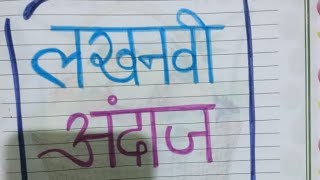 लखनवी
अंदाज